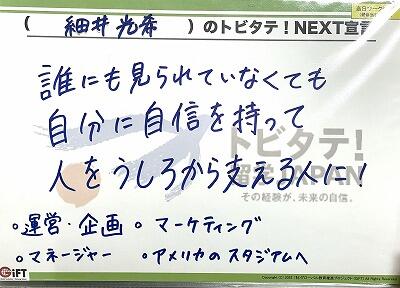 ( 細井光希 )のトビタテ！NEXT宣言
誰にも見られていなくても
自分に自信を持って
人をうしろから支える人に！
トビタテ！
留学JAPAN
その経験が、未来の自信。
・運営・企画 ・マーケティング
・マネージャー ・アメリカのスタジアムへ
GiFT